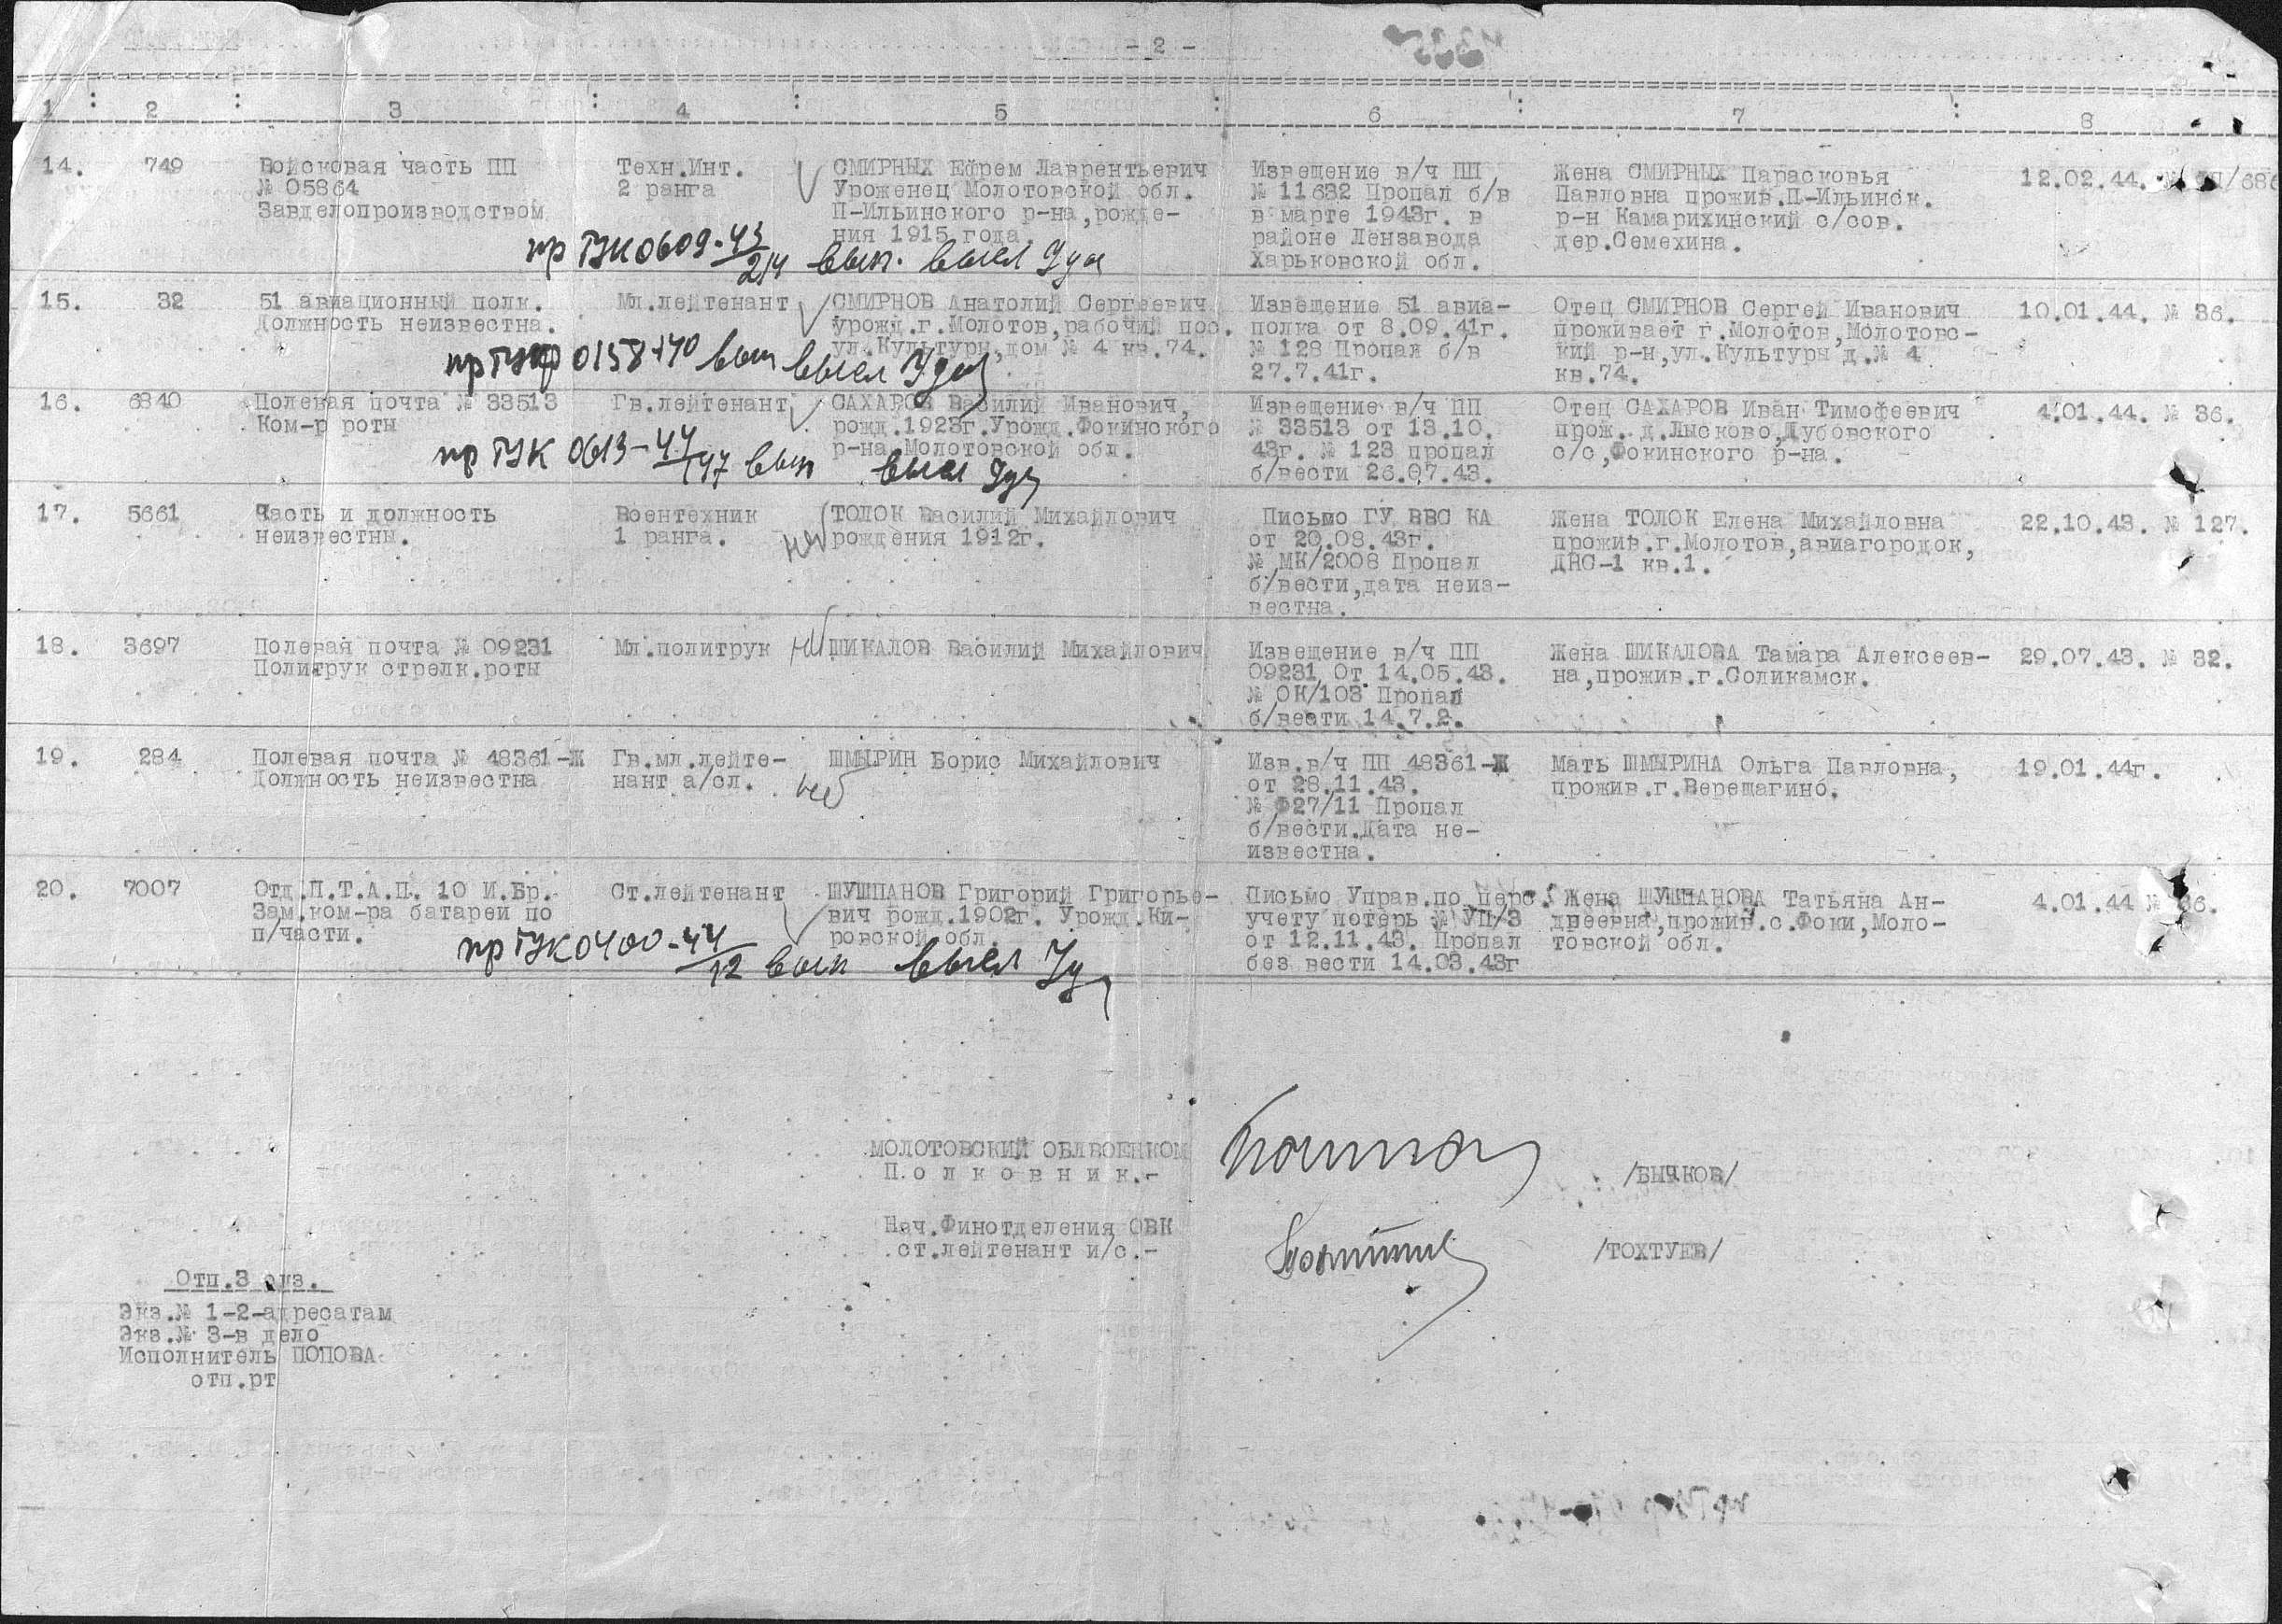 - 2 -
1 : 2 : 3 : 4 : 5 : 6 : 7 : 8
14.
749
Войсковая часть ПП
№ 05864
Завделопроизводством
Техн.Инт.
2 ранга
СМИРНЫХ Ефрем Лаврентьевич
Уроженец Молотовской обл.
П-Ильинского р-на,рожде-
ния 1915 года
Извещение в/ч ПП
№ 11632 Пропал б/в
в марте 1943г. в
районе Лензавода
Харьковской обл.
Жена СМИРНЫХ Парасковья
Павловна прожив.П-Ильинск.
р-н Камарихинский с/сов.
дер.Семехина.
12.02.44. №
пр ГУК 0609-43/214 вып. высл
15.
32
51 авиационный полк.
Должность неизвестна.
Мл.лейтенант
СМИРНОВ Анатолий Сергеевич
урожд.г.Молотов,рабочий пос.
ул.Культуры,дом № 4 кв.74.
Извещение 51 авиа-
полка от 8.09.41г.
№ 128 Пропал б/в
27.7.41г.
Отец СМИРНОВ Сергей Иванович
проживает г.Молотов,Молотовс-
кий р-н,ул.Культуры д.№ 4
кв.74.
10.01.44. № 36.
вып высл
16.
6840
Полевая почта № 33513
Ком-р роты
Гв.лейтенант
САХАРОВ Василий Иванович,
рожд.1923г.Урожд.Фокинского
р-на Молотовской обл.
Извещение в/ч ПП
№ 33513 от 13.10.
43г. № 123 пропал
б/вести 26.07.43.
Отец САХАРОВ Иван Тимофеевич
прож. д.Лысково,Дубовского
с/с,Фокинского р-на.
4.01.44. № 36.
пр ГУК 0613-44/147 вып высл
17.
5661
Часть и должность
неизвестны.
Воентехник
1 ранга.
ТОЛОК Василий Михайлович
рождения 1912г.
Письмо ГУ ВВС КА
от 20.08.43г.
№ МК/2008 Пропал
б/вести,дата неиз-
вестна.
Жена ТОЛОК Елена Михайловна
прожив.г.Молотов,авиагородок,
ДНС-1 кв.1.
22.10.43. № 127.
18.
3697
Полевая почта № 09231
Политрук стрелк.роты
Мл.политрук
ШИКАЛОВ Василий Михайлович
Извещение в/ч ПП
09231 От 14.05.43.
№ ОК/103 Пропал
б/вести 14.7.2.
Жена ШИКАЛОВА Тамара Алексеев-
на,прожив.г.Соликамск.
29.07.43. № 32.
19.
284
Полевая почта № 48361-Ж
Должность неизвестна
Гв.мл.лейте-
нант а/сл.
ШМЫРИН Борис Михайлович
Изв.в/ч ПП 48361-Ж
от 28.11.43.
№ Ф27/11 Пропал
б/вести.Дата не-
известна.
Мать ШМЫРИНА Ольга Павловна,
прожив.г.Верещагино.
19.01.44г.
20.
7007
Отд.П.Т.А.П. 10 И.Бр.
Зам.ком-ра батареи по
п/части.
Ст.лейтенант
ШУШПАНОВ Григорий Григорье-
вич рожд.1902г. Урожд.Ки-
ровской обл.
Письмо Управ.по перс.
учету потерь № УП/3
от 12.11.43. Пропал
без вести 14.03.43г
Жена ШУШПАНОВА Татьяна Ан-
дреевна,прожив.с.Фоки,Моло-
товской обл.
4.01.44 № 36.
пр ГУК 0400-44/12 вып высл
МОЛОТОВСКИЙ ОБЛВОЕНКОМ
П о л к о в н и к.-
/БЫЧКОВ/
Нач.Финотделения ОВК
ст.лейтенант и/с.-
/ТОХТУЕВ/
Отп.3 экз.
Экз.№ 1-2-адресатам
Экз.№ 3-в дело
Исполнитель ПОПОВА
отп.рт